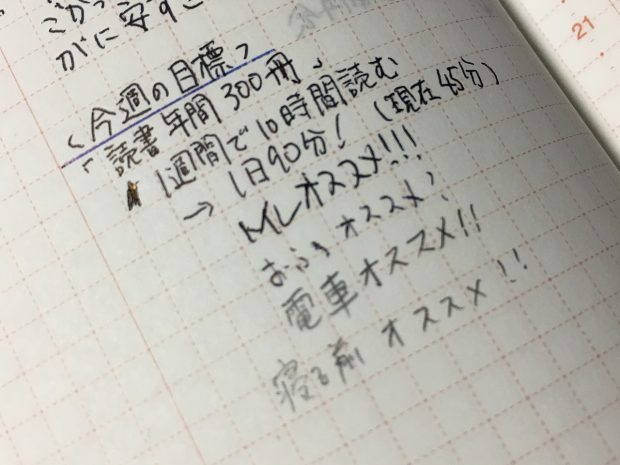 がに安すぎ
21
〈今週の目標〉
「読書年間300冊」
1週間で10時間読む
→ 1日90分! (現在45分)
トイレオススメ!!!
おふろオススメ!
電車オススメ!!
寝る前オススメ!!